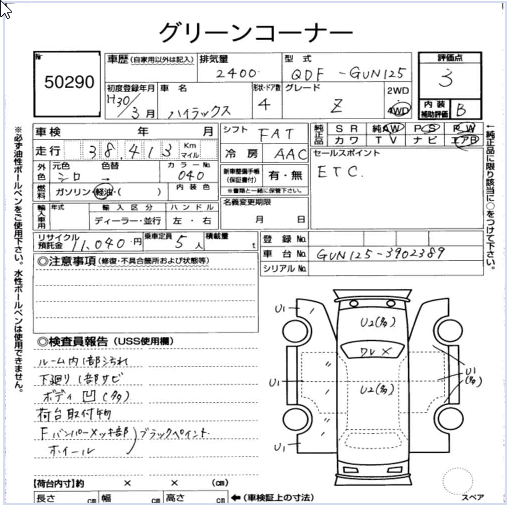 グリーンコーナー
№ 50290
車歴 (自家用以外は記入)
排気量 2400
型式 QDF-GUN125
評価点 3
初度登録年月 H30年3月
車名 ハイラックス
形状・ドア数 4
グレード Z
2WD
4WD
内装補助評価 B
車検 年 月
シフト FAT
純正品 SR 純AW PS PW
カワ TV ナビ エアB
走行 38,413 Km マイル
冷房 AAC
セールスポイント
ETC.
外色 元色 シロ → 色替
カラーNo. 040
新車整備手帳(保証書付) 有・無
※書類と一緒に保管して下さい。
燃料 ガソリン・軽油・( )
内装色
名義変更期限
月 日
輸入車用 年式 輸入区分 ハンドル
ディーラー・並行 左・右
リサイクル預託金 11,040円
乗車定員 5人
積載量 t
登録No.
車台No. GUN125-3902389
シリアルNo.
※必ず油性ボールペンをご使用下さい。水性ボールペンは使用できません。
←純正品に限り該当に○をつけて下さい。
◎注意事項 (修復・不具合箇所および状態等)
◎検査員報告 (USS使用欄)
ルーム内1部汚れ
下廻り1部サビ
ボディ凹(多)
荷台取付物
Fバンパーメッキ部
ホイール
ブラックペイント
U1
U2(多)
ワレ×
U1
U2(多)
U1
(多)
U1
【荷台内寸】約 × × (㎝)
長さ ㎝ 幅 ㎝ 高さ ㎝
←(車検証上の寸法)
スペア